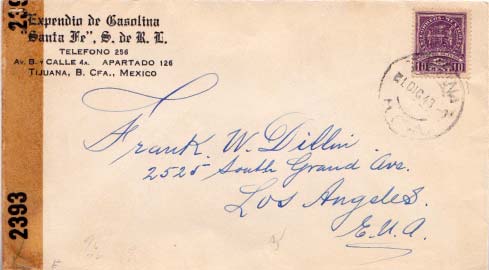 "Expendio de Gasolina
Santa Fe", S. de R. L.
TELEFONO 256
AV. B. Y CALLE 4A. APARTADO 126
TIJUANA, B. CFA., MEXICO
10 10
DIC 43
Frank. W. Dillin.
2525 South Grand Ave.
Los Angeles.
E.U.A.
2393